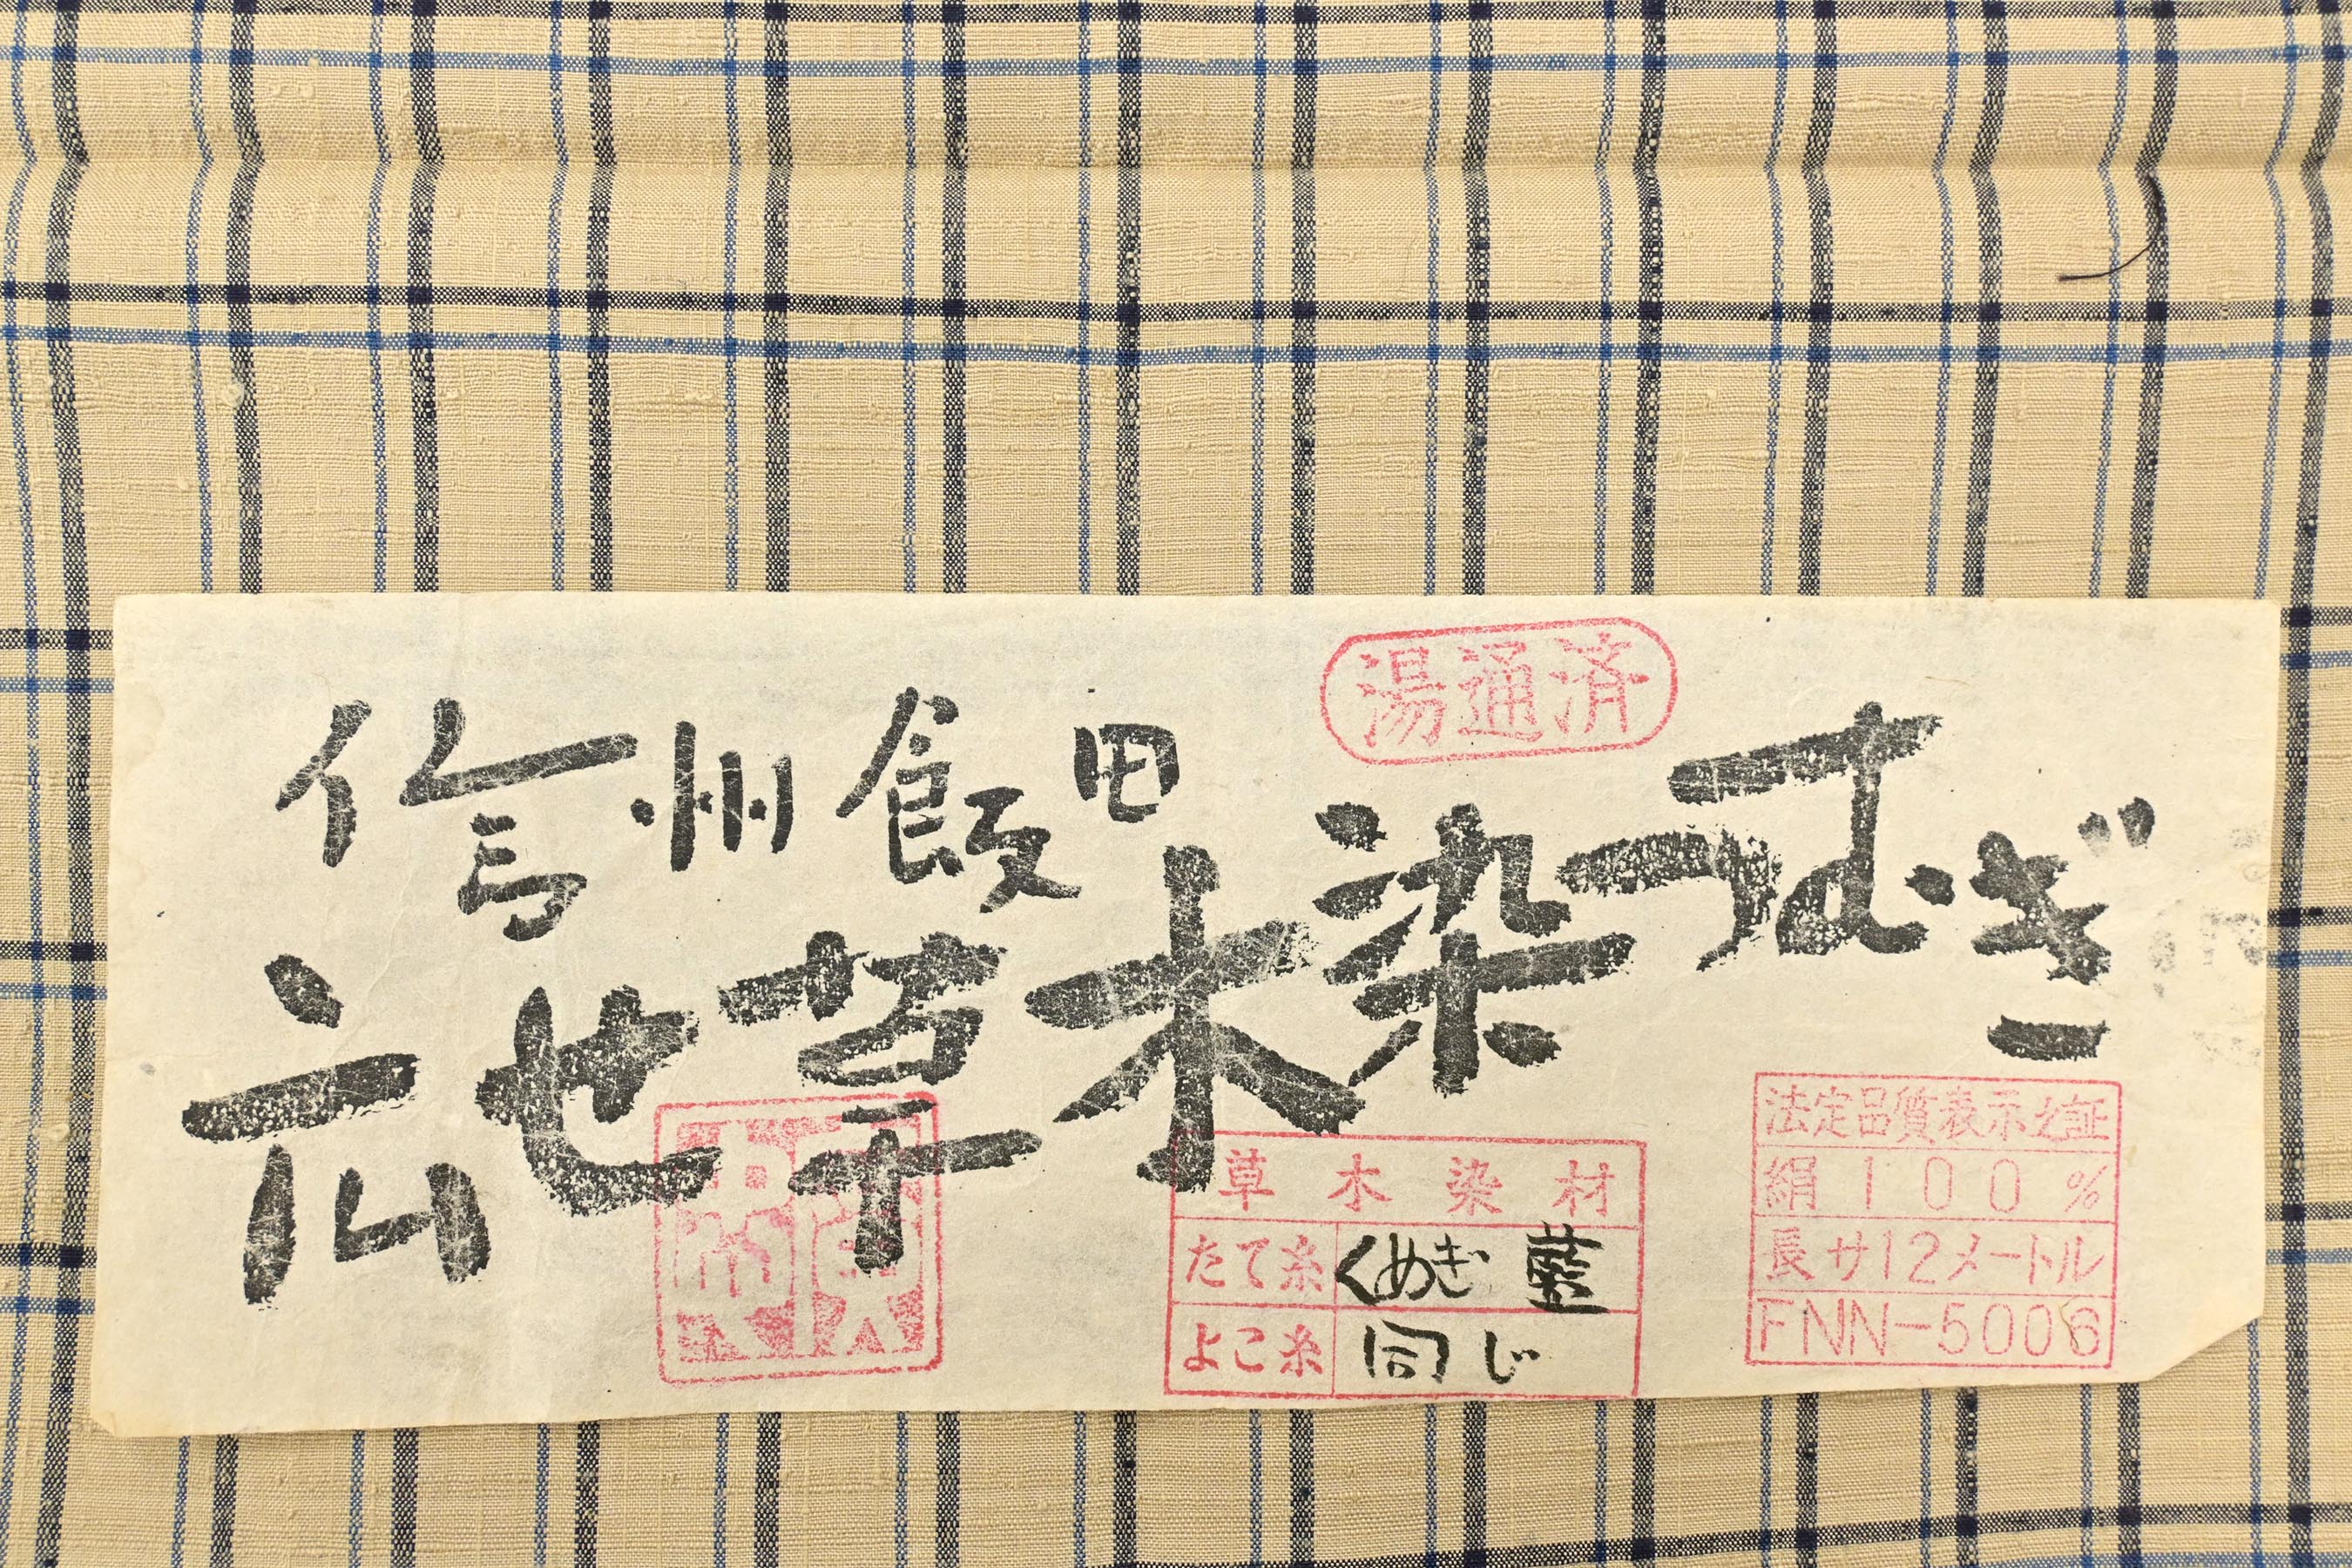 湯通済
信州飯田
草木染つむぎ
草木染材
たて糸 くぬぎ 藍
よこ糸 同じ
法定品質表示之証
絹100%
長サ12メートル
FNN-5006